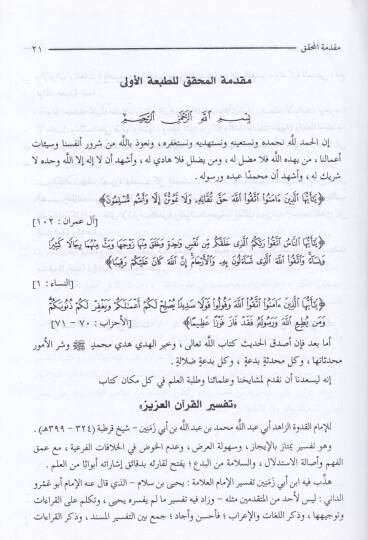 مقدمة المحقق
٢١
مقدمة المحقق للطبعة الأولى
بِسْمِ اللَّهِ الرَّحْمَٰنِ الرَّحِيمِ
إن الحمد للَّه نحمده ونستعينه ونستهديه ونستغفره، ونعوذ باللَّه من شرور أنفسنا وسيئات
أعمالنا، من يهده اللَّه فلا مضل له، ومن يضلل فلا هادي له، وأشهد أن لا إله إلا اللَّه وحده لا
شريك له، وأشهد أن محمدًا عبده ورسوله.
﴿يَٰٓأَيُّهَا الَّذِينَ ءَامَنُوا اتَّقُوا اللَّهَ حَقَّ تُقَاتِهِۦ وَلَا تَمُوتُنَّ إِلَّا وَأَنتُم مُّسْلِمُونَ﴾
[آل عمران : ١٠٢]
﴿يَٰٓأَيُّهَا النَّاسُ اتَّقُوا رَبَّكُمُ الَّذِى خَلَقَكُم مِّن نَّفْسٍ وَٰحِدَةٍ وَخَلَقَ مِنْهَا زَوْجَهَا وَبَثَّ مِنْهُمَا رِجَالًا كَثِيرًا
وَنِسَآءً وَاتَّقُوا اللَّهَ الَّذِى تَسَآءَلُونَ بِهِۦ وَالْأَرْحَامَ إِنَّ اللَّهَ كَانَ عَلَيْكُمْ رَقِيبًا﴾
[النساء : ١]
﴿يَٰٓأَيُّهَا الَّذِينَ ءَامَنُوا اتَّقُوا اللَّهَ وَقُولُوا قَوْلًا سَدِيدًا يُصْلِحْ لَكُمْ أَعْمَٰلَكُمْ وَيَغْفِرْ لَكُمْ ذُنُوبَكُمْ
وَمَن يُطِعِ اللَّهَ وَرَسُولَهُۥ فَقَدْ فَازَ فَوْزًا عَظِيمًا﴾
[الأحزاب : ٧٠ – ٧١]
أما بعد فإن أصدق الحديث كتاب اللَّه تعالى، وخير الهدي هدي محمدٍ ﷺ وشر الأمور
محدثاتها، وكل محدثةٍ بدعةٍ، وكل بدعةٍ ضلالةٍ.
إنه ليسعدنا أن نقدم لمشايخنا وعلمائنا وطلبة العلم في كل مكان كتاب
«تفسير القرآن العزيز»
للإمام القدوة الزاهد أبي عبد اللَّه محمد بن عبد اللَّه بن أبي زَمَنِين – شيخ قرطبة (٣٢٤ – ٣٩٩هـ).
وهو تفسير يمتاز بالإيجاز، وسهولة العرض، وعدم الخوض في الخلافات الفرعية، مع عمق
الفهم وأصالة الاستدلال، والسلامة من البدع؛ يفتح لقارئه بدقائق إشاراته أبوابًا من العلم.
هذّب فيه ابن أبي زَمَنِين تفسير الإمام العلامة : يحيى بن سلام – الذي قال عنه الإمام أبو عَمْرو
الداني : ليس لأحد من المتقدمين مثله – وزاد فيه تفسير ما لم يفسره يحيى، وتكلم على القراءات
وتوجيهها، وذكر اللغات والإعراب؛ فأحسن وأجاد؛ جمع بين التفسير المسند، وذكر القراءات